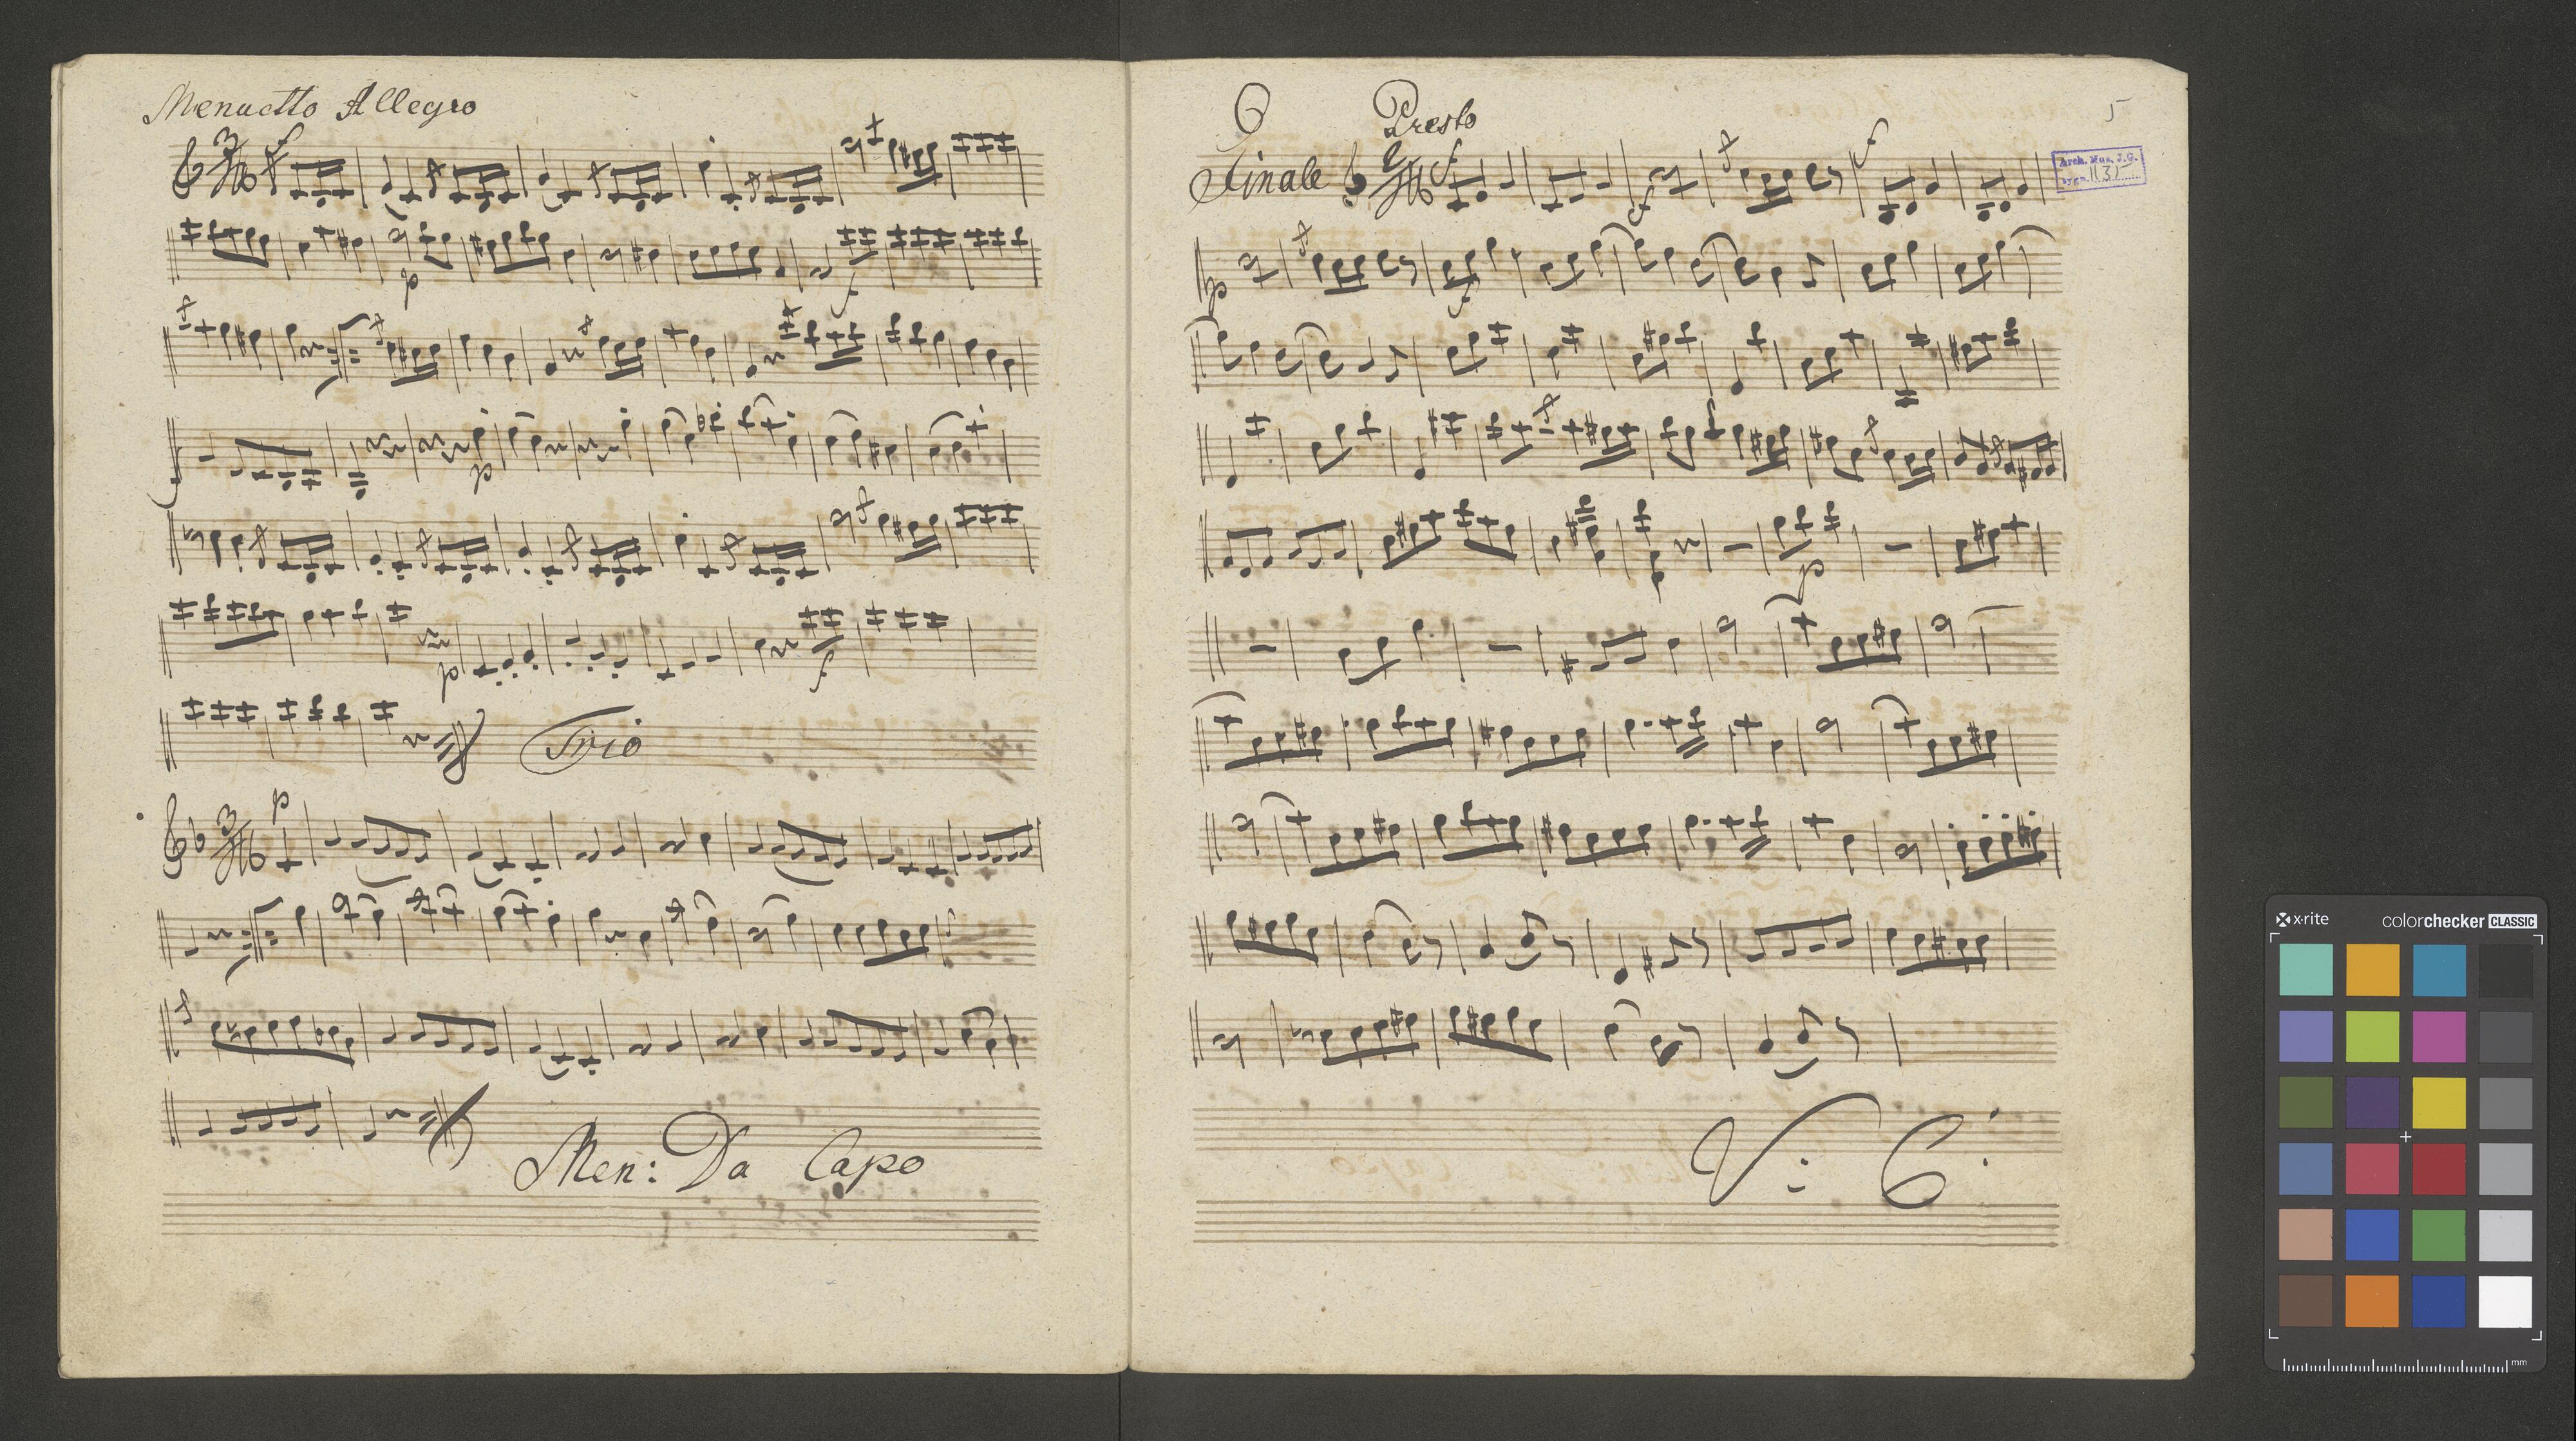 Menuetto Allegro
3
f
p
f
p
p
f
Trio
3
p
Men: Da Capo
6 Presto
5
Finale
2
f
f
f
Arch. Mus. J.G.
p
f
p
V: 
x·rite
colorchecker CLASSIC
mm